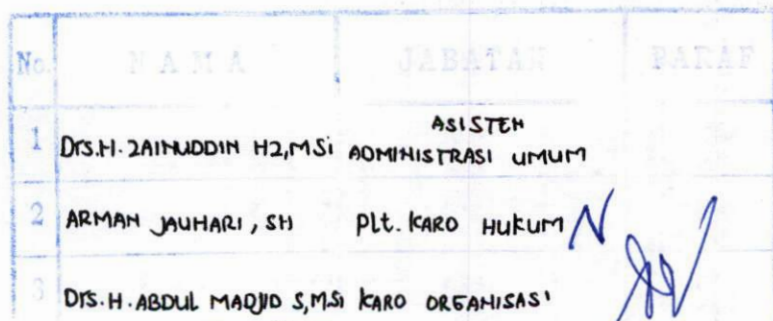 No. NAMA JABATAN PARAF
1 Drs.H. ZAINUDDIN HZ,MSi ASISTEN ADMINISTRASI UMUM
2 ARMAN JAUHARI, SH Plt. KARO HUKUM
3 Drs.H. ABDUL MADJID S,MSi KARO ORGANISASI